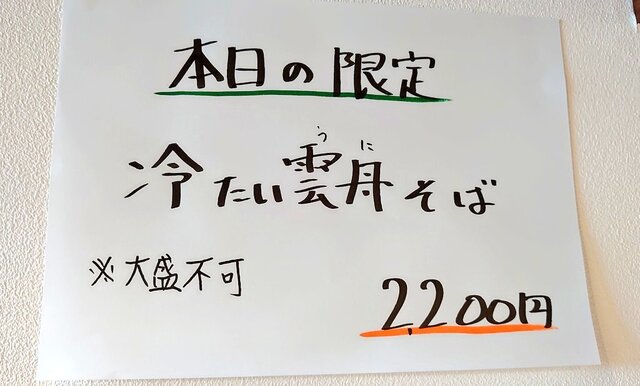 本日の限定
うに
冷たい雲丹そば
※大盛不可
2,200円